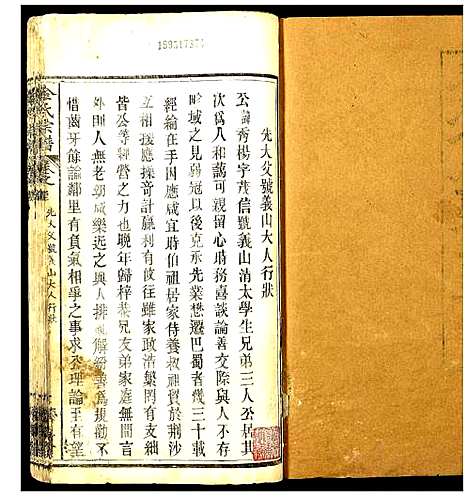 159517371
先大父號義山大人行狀
公諱秀楊字茂信號義山清太學生兄弟三人公居其
次為人和藹可親留心時務喜談論善交際與人不存
畛域之見弱冠以後克承先業懋遷巴蜀者幾三十載
經綸在手因應咸宜時伯祖居家侍養叔祖貿於荆沙
互相援應操奇計贏利有攸往雖家政浩繁罔有支絀
皆公等經營之力也晚年歸梓葉兄友弟家庭無間言
外則人無老幼咸樂近之與人排難解紛善為規勸不
惜齒牙餘論鄰里有負氣相爭之事求公理論至有望
氏宗譜 卷之
先大父號義山大人行狀